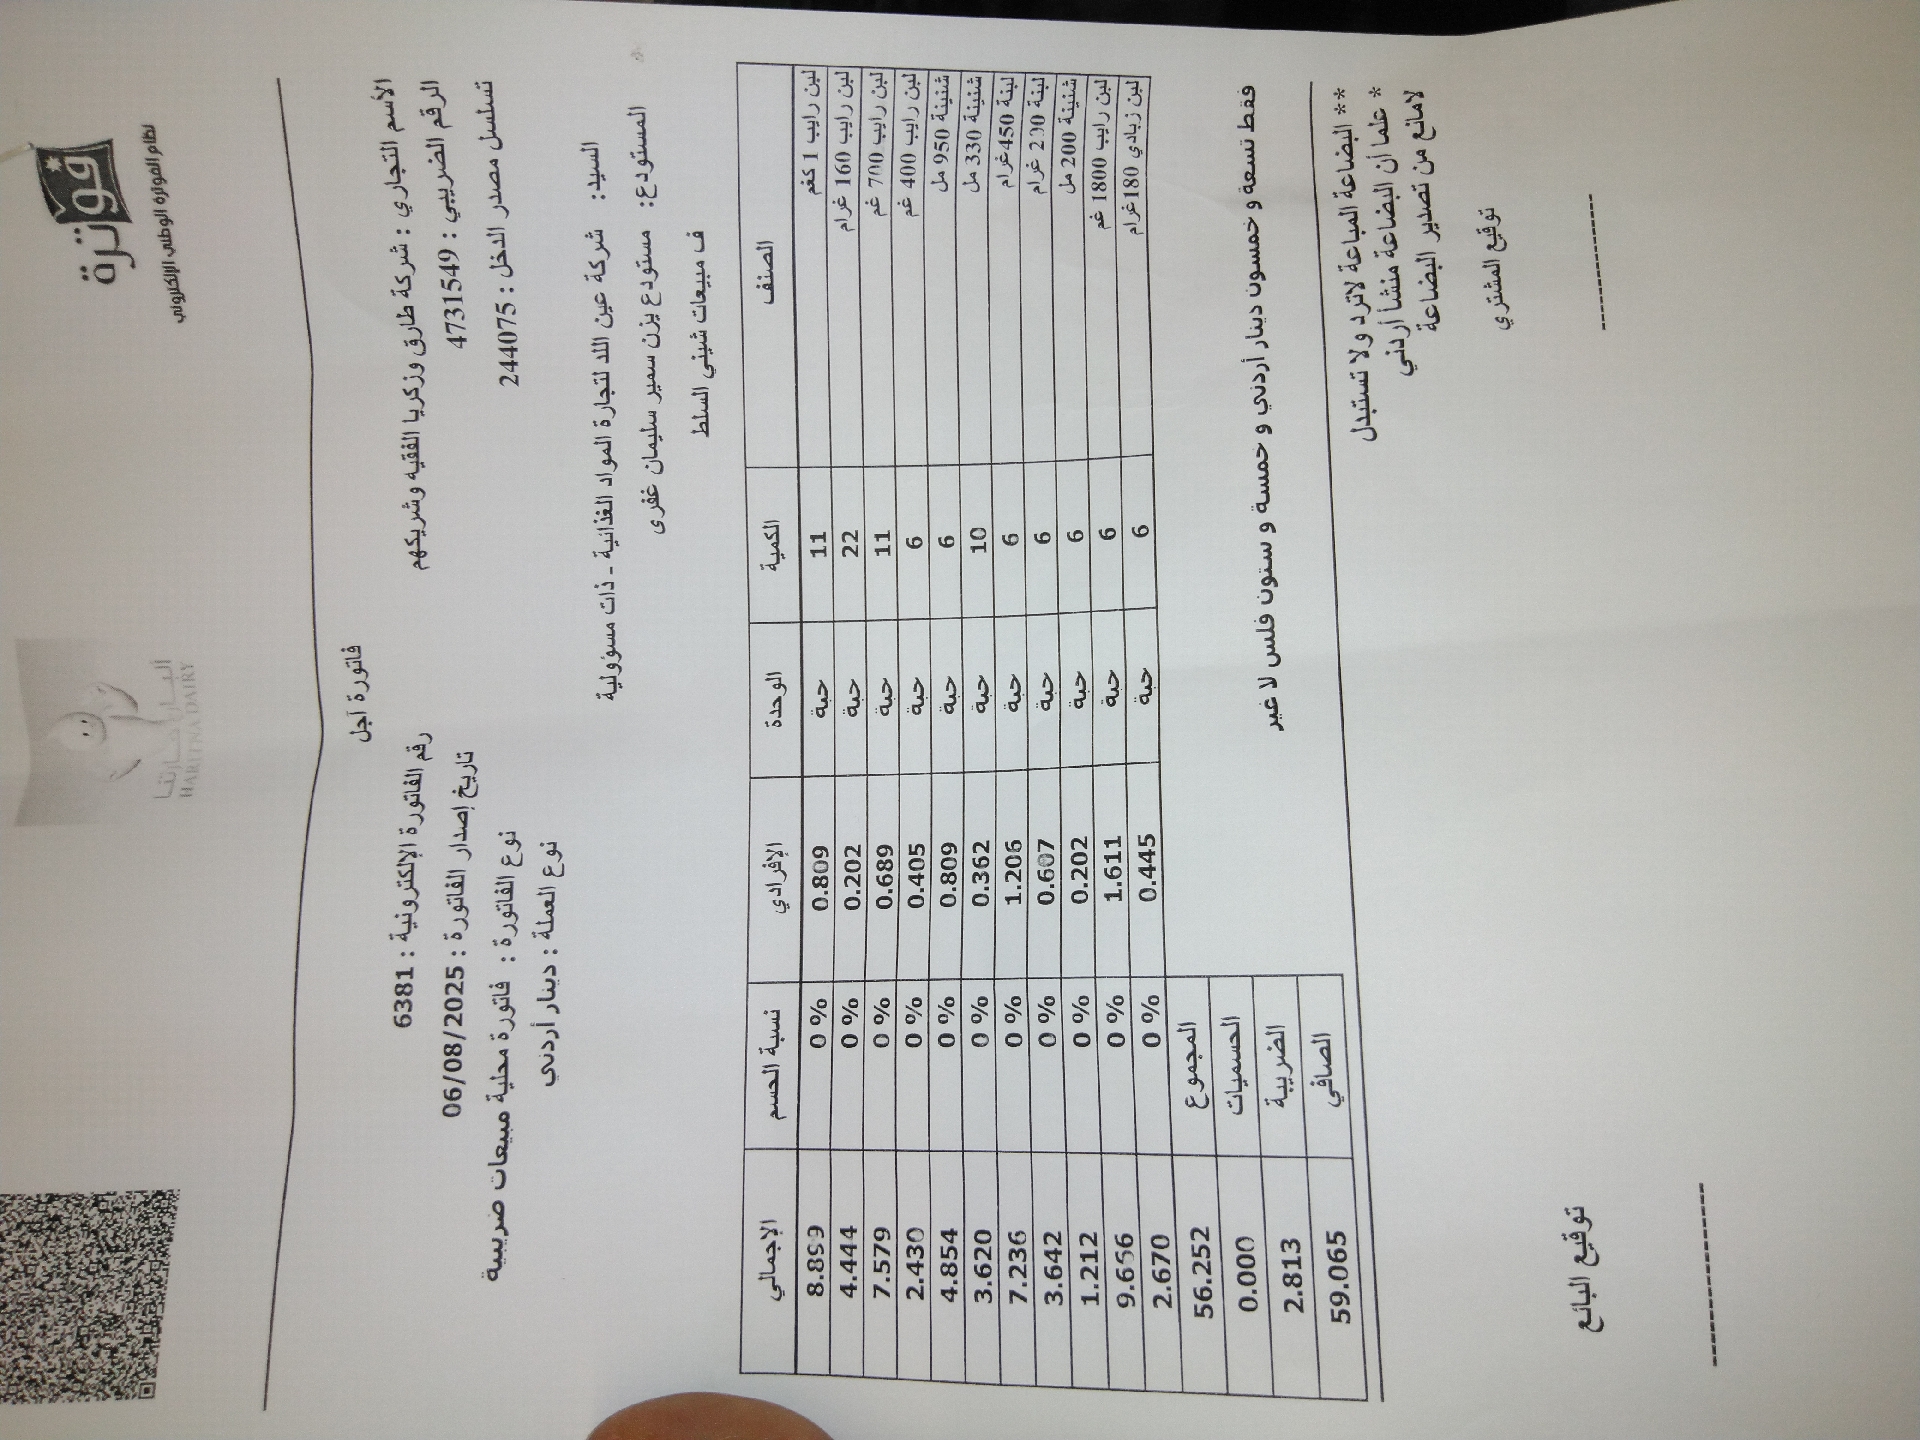 فوترة
نظام الفوترة الوطني الإلكتروني
ألبان حارتنا
HARITNA DAIRY
فاتورة آجل
الأسم التجاري : شركة طارق وزكريا الفقيه وشريكهم
رقم الفاتورة الإلكترونية : 6381
الرقم الضريبي : 4731549
تاريخ إصدار الفاتورة : 06/08/2025
تسلسل مصدر الدخل : 244075
نوع الفاتورة : فاتورة محلية مبيعات ضريبية
نوع العملة : دينار أردني
السيد: شركة عين اللد لتجارة المواد الغذائية - ذات مسؤولية
المستودع: مستودع يزن سمير سليمان غفرى
ف مبيعات شيني السلط
الصنف الكمية الوحدة الإفرادي نسبة الحسم الإجمالي
لبن رايب 1 كغم 11 حبة 0.809 0 % 8.899
لبن رايب 160 غرام 22 حبة 0.202 0 % 4.444
لبن رايب 700 غم 11 حبة 0.689 0 % 7.579
لبن رايب 400 غم 6 حبة 0.405 0 % 2.430
شنينة 950 مل 6 حبة 0.809 0 % 4.854
شنينة 330 مل 10 حبة 0.362 0 % 3.620
لبنة 450غرام 6 حبة 1.206 0 % 7.236
لبنة 200 غرام 6 حبة 0.607 0 % 3.642
شنينة 200 مل 6 حبة 0.202 0 % 1.212
لبن رايب 1800 غم 6 حبة 1.611 0 % 9.666
لبن زبادي 180غرام 6 حبة 0.445 0 % 2.670
المجموع 56.252
الحسميات 0.000
الضريبة 2.813
الصافي 59.065
فقط تسعة و خمسون دينار أردني و خمسة و ستون فلس لا غير
** البضاعة المباعة لاترد ولا تستبدل
* علما أن البضاعة منشأ أردني
لامانع من تصدير البضاعة
توقيع المشتري
توقيع البائع